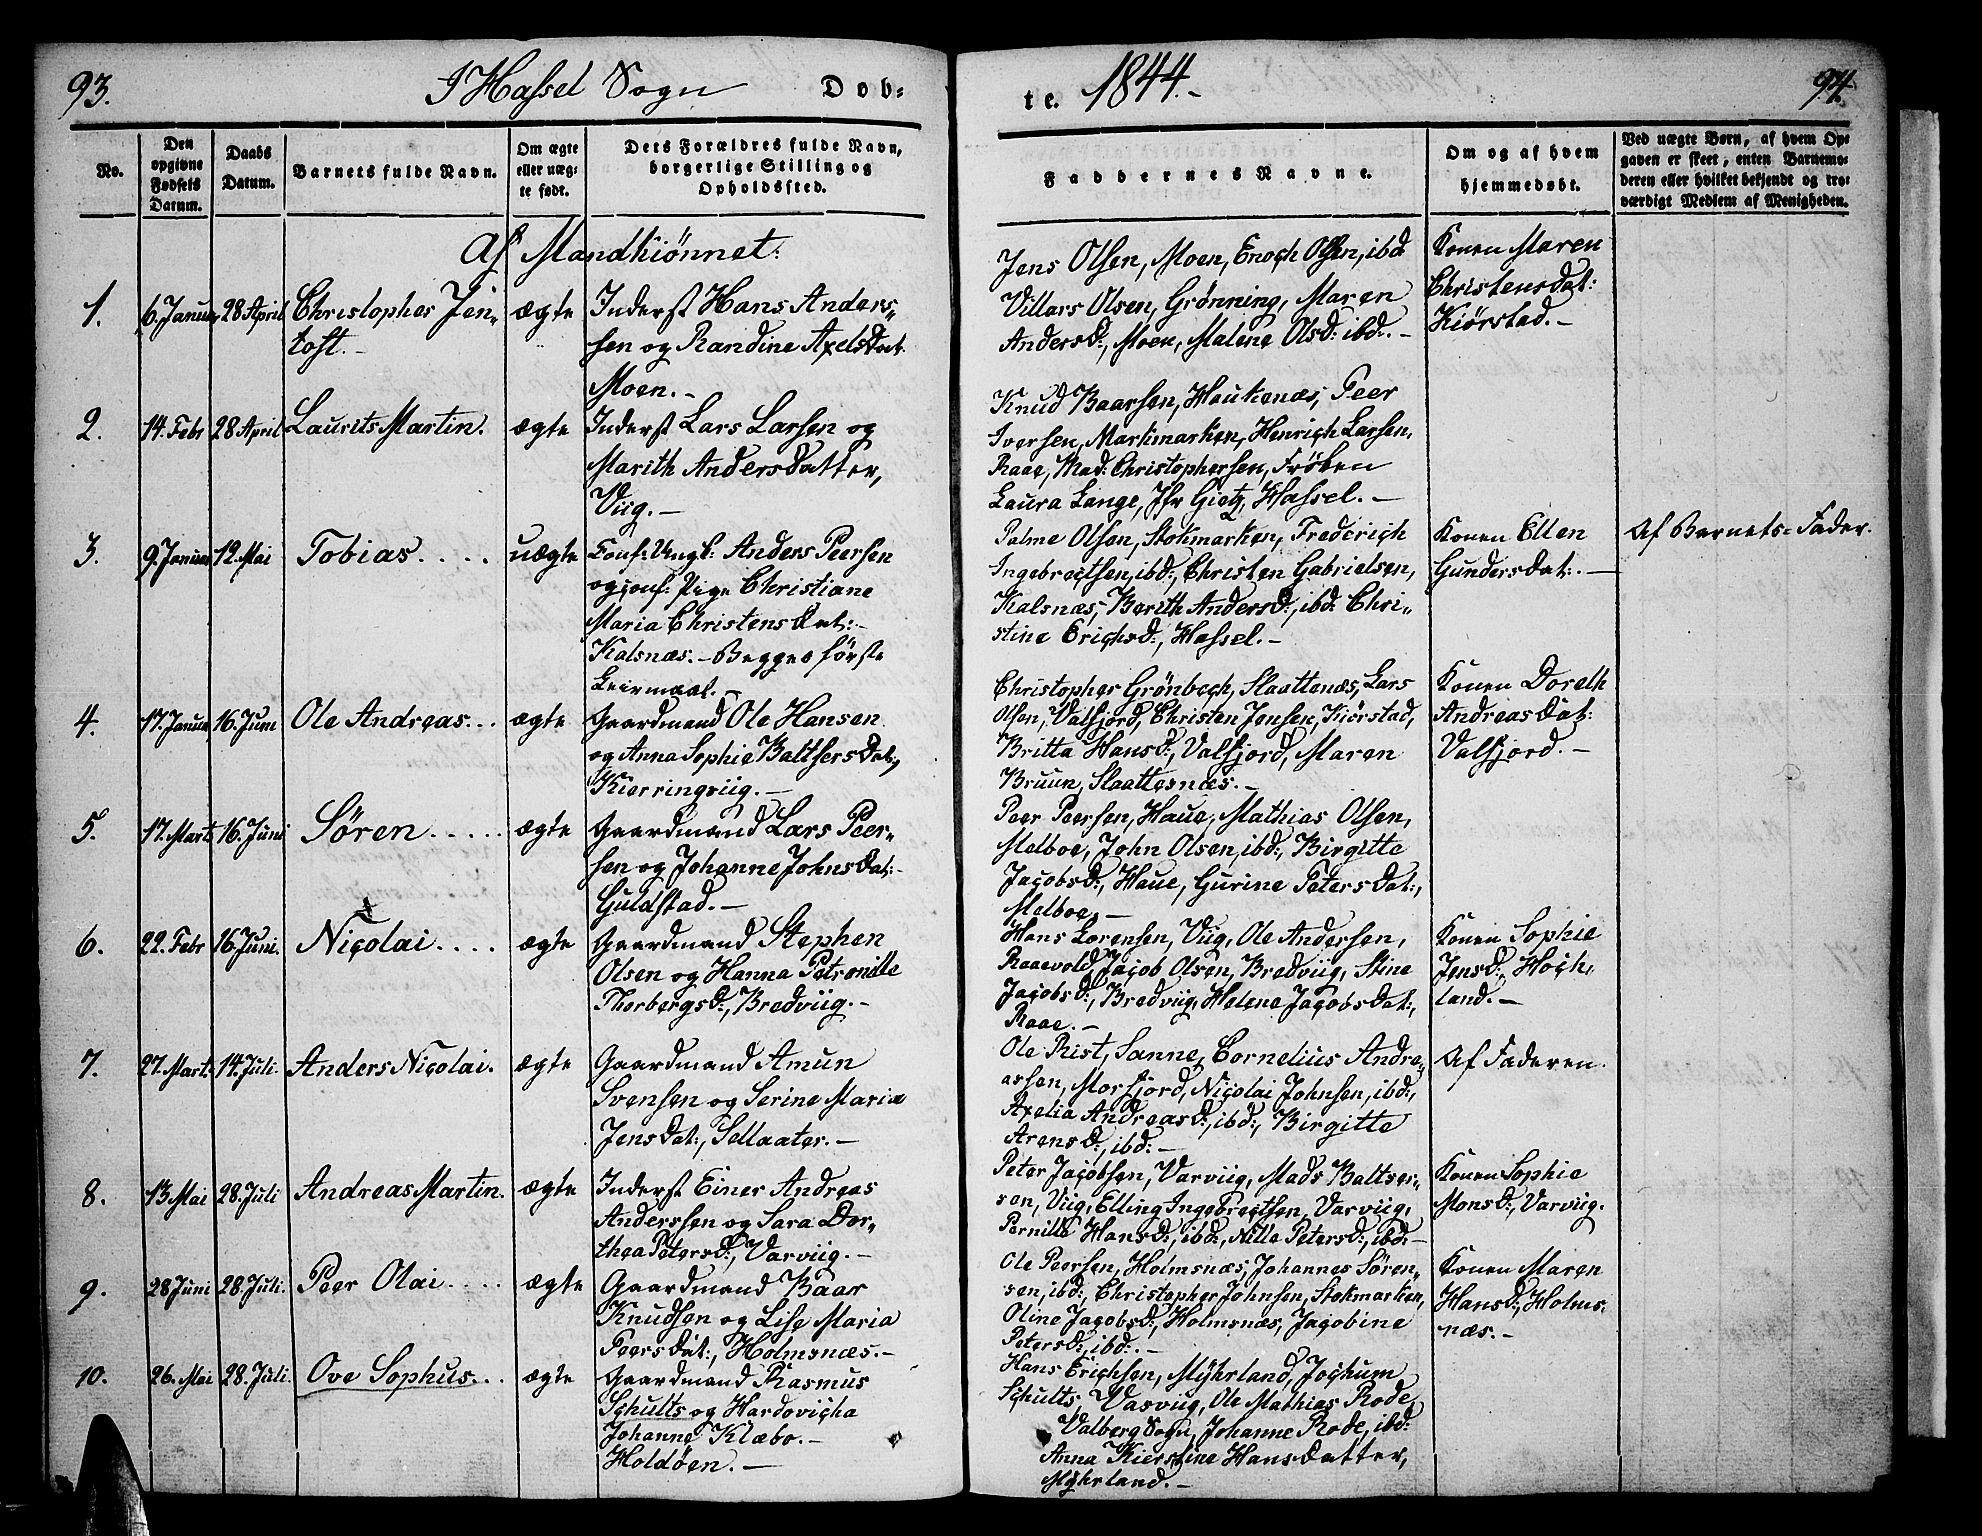 93.
I Hassel Sogn
Dob-
te.
1844.-
94.
No.
Den opgivne Fødsels Datum.
Daabs Datum.
Barnets fulde Navn.
Om ægte eller uægte født.
Dets Forældres fulde Navn, borgerlige Stilling og Opholdssted.
Faddernes Navne.
Om og af hvem hjemmedøbt.
Ved uægte Børn, af hvem Opgaven er skeet, enten Barnemoderen eller hvilket bekjendt og troværdigt Medlem af Menigheden.
Af Mandkiønnet:
1.
6. Januar
28 April
Christopher Jen-
toft.-
ægte
Inderst Hans Anders-
sen og Randine Axelsdat:
Moen.-
Jens Olsen, Moen, Enoch Olsen, ibd
Villars Olsen, Grønning, Maren
Andersd:, Moen, Malene Olsd: ibd:.-
Konen Maren
Christensdat:
Kiørstad.-
2.
14. Febr
28 April
Laurits Martin.
ægte
Inderst Lars Larsen og
Marith Andersdatter,
Viig.-
Knud Baarsen, Haukenæs, Peer
Iversen, Markmarken, Henrich Larsen,
Raae, Mad: Christophersen, Frøken
Laura Lange, Jfr Gietz, Hassel.-
3.
9. Januar
12. Mai
Tobias....
uægte
Conf: Ungk: Anders Peersen
og conf: Pige Christiane
Maria Christensdat:-
Kalsnæs.- Begges første
Leiermaal.-
Palme Olsen, Stokmarken, Frederich
Ingebrectsen, ibd:, Christen Gabrielsen,
Kalsnæs, Berith Andersd:, ibd: Chri-
stine Erichsd:, Hassel.-
Konen Ellen
Gundersdat:.-
Af Barnets Fader.
4.
17. Januar
16. Juni
Ole Andreas...
ægte
Gaardmand Ole Hansen
og Anna Sophie Baltsersdat:,
Kierringviig.-
Christopher Grönbech, Slaattenæs, Lars
Olsen, Valfjord, Christen Jensen, Kiørstad,
Britta Hansd:, Valfjord, Maren
Bruun, Slaattesnæs.-
Konen Doreth
Andreasdat:
Valfjord.-
5.
17. Marts
16. Juni
Søren.....
ægte
Gaardmand Lars Peer-
sen og Johanne Johnsdat:-
Guldstad.-
Peer Peersen, Haue, Mathias Olsen,
Melboe, John Olsen, ibd:, Birgitte
Jacobsd:, Haue, Gurine Petersdat:,
Melboe.-
6.
22. Febr
16. Juni.
Nicolai....
ægte
Gaardmand Stephen
Olsen og Hanna Petronille
Thorbergsd:, Bredviig.-
Hans Lorensen, Viig, Ole Andersen,
Raaevold, Jacob Olsen, Bredviig, Stine
Jacobsd:, Bredviig, Helene Jacobsdat:,
Raae.-
Konen Sophie
Jensd:, Hoch-
land.-
7.
27. Mart:
14. Juli.
Anders Nicolai.
ægte
Gaardmand Amun
Svensen og Serine Maria
Jensdat:, Sellaater.-
Ole Rist, Sanne, Cornelius Andre-
assen, Morfjord, Nicolai Johnsen, ibd:,
Axelia Andreasd:, ibd:, Birgitte
Arensd:, ibd:-
Af Faderen.
8.
13. Mai
28. Juli
Andreas Martin.
ægte
Inderst Einer Andreas
Anderssen og Sara Dor-
thea Petersd:, Varviig.-
Peter Jacobsen, Varviig, Mads Baltser-
sen, Viig, Elling Ingebrectsen, Varviig,
Pernille Hansd:, ibd:, Nille Petersd:, ibd:-
Konen Sophie
Monsd:, Varviig.
9.
28 Juni
28. Juli.
Peer Olai....
ægte
Gaardmand Baar
Knudsen og Lise Maria
Peersdat:, Holmsnæs.-
Ole Peersen, Holmsnæs, Johannes Søren-
sen, ibd:, Christopher Johnsen, Stokmarken,
Oline Jacobsd:, Holmsnæs, Jacobine
Petersd:, ibd:.-
Konen Maren
Hansd:, Holms-
næs.-
10.
26. Mai
28. Juli.
Ove Sophus...
ægte
Gaardmand Rasmus
Schults og Hardovicha
Johanne Klæbo.-
Holdöen.-
Hans Erichsen, Mÿhrland, Jochum
Schults, Vasviig, Ole Mathias Rode,
Valberg Sogn, Johanne Rode, ibd:
Anna Kierstine Hansdatter,
Mÿhrland.-